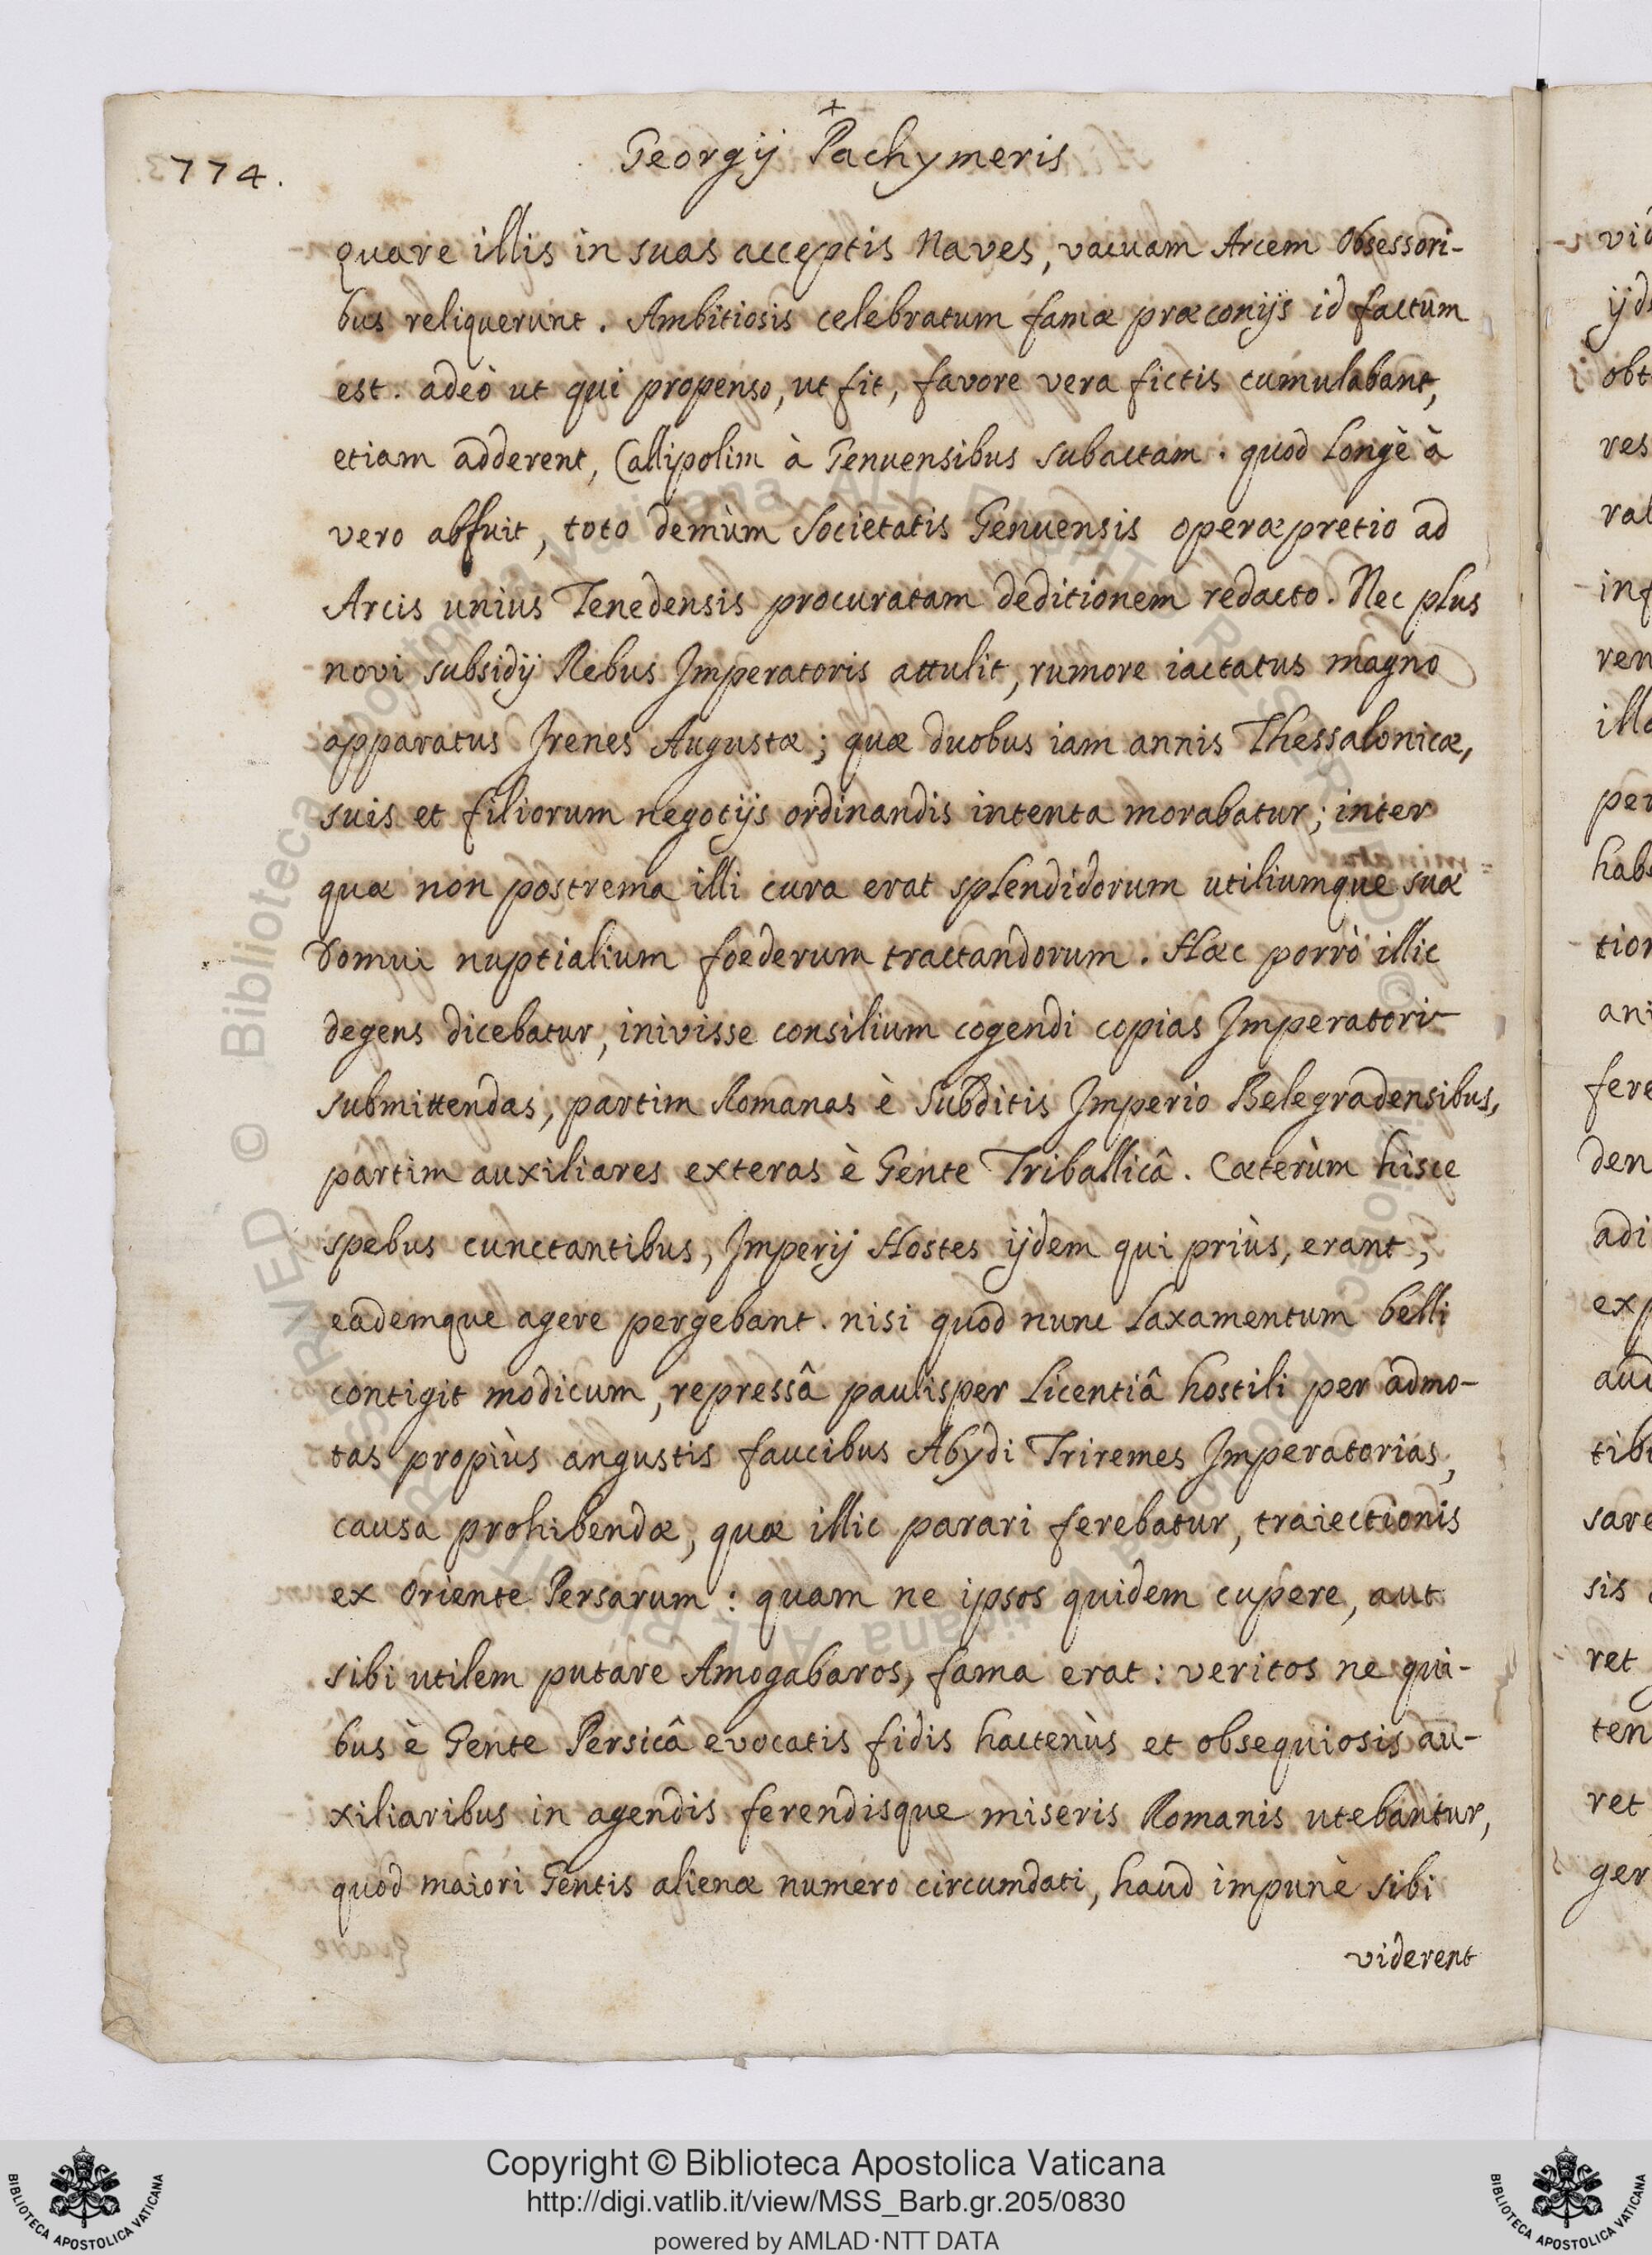 774.
+
Georgij Pachymeris
quare illis in suas acceptis Naves, vacuam Arcem Obsessori-
bus reliquerunt. Ambitiosis celebratum famæ præconijs id factum
est. adeò ut qui propenso, ut fit, favore vera fictis cumulabant,
etiam adderent, Callipolim à Genuensibus subactam. quod Longè à
vero abfuit, toto demùm Societatis Genuensis operæpretio ad
Arcis unius Tenedensis procuratam deditionem redacto. Nec plus
novi subsidij Rebus Imperatoris attulit, rumore iactatus magno
apparatus Irenes Augustæ; quæ duobus iam annis Thessalonicæ,
suis et filiorum negotijs ordinandis intenta morabatur; inter
quæ non postrema illi cura erat splendidorum utiliumque suæ
Domui nuptialium foederum tractandorum. Hæc porrò illic
degens dicebatur, inivisse consilium cogendi copias Imperatori
submittendas, partim Romanas è Subditis Imperio Belegradensibus,
partim auxiliares exteras è Gente Triballicâ. Cæterùm hisce
spebus cunctantibus, Imperij Hostes ijdem qui priùs, erant,
eademque agere pergebant. nisi quod nunc Laxamentum belli
contigit modicum, repressâ paulisper Licentiâ hostili per admo-
tas propiùs angustis faucibus Abydi Triremes Imperatorias,
causa prohibendæ, quæ illic parari ferebatur, traiectionis
ex Oriente Persarum: quam ne ipsos quidem cupere, aut
sibi utilem putare Amogabaros, fama erat: veritos ne qui-
bus è Gente Persicâ evocatis fidis hactenùs et obsequiosis au-
xiliaribus in agendis ferendisque miseris Romanis utebantur,
quod maiori Gentis alienæ numero circumdati, haud impunè sibi
viderent
vid
ijds
obt
res
ral
inf
ren
illa
per
habe
tion
ani
fere
den
adi
exp
aud
tibu
sare
sis
ret
ten
ret
ger
© Biblioteca Apostolica Vaticana ALL RIGHTS RESERVED
Copyright © Biblioteca Apostolica Vaticana
http://digi.vatlib.it/view/MSS_Barb.gr.205/0830
powered by AMLAD·NTT DATA
BIBLIOTECA APOSTOLICA VATICANA
BIBLIOTECA APOSTOLICA VATICANA